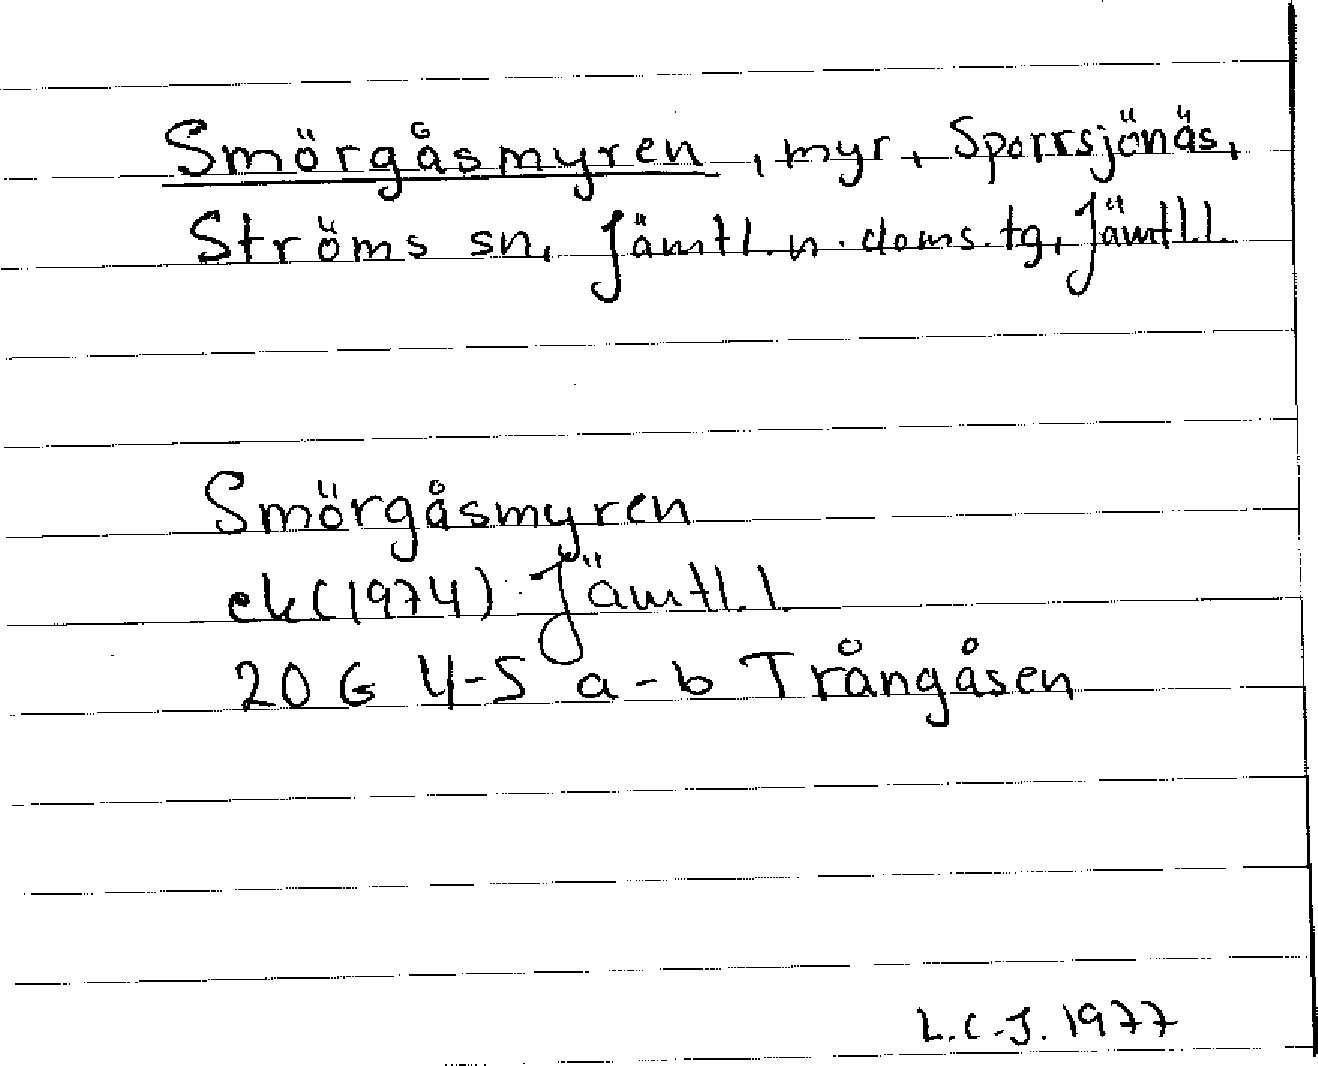 Smörgåsmyren, myr, Sporrsjönäs,
Ströms sn, Jämtl. n. doms. tg, Jämtl.l.
Smörgåsmyren
ek (1974) Jämtl. l.
20 G 4-5 a-b Trångåsen
L.C-J. 1977